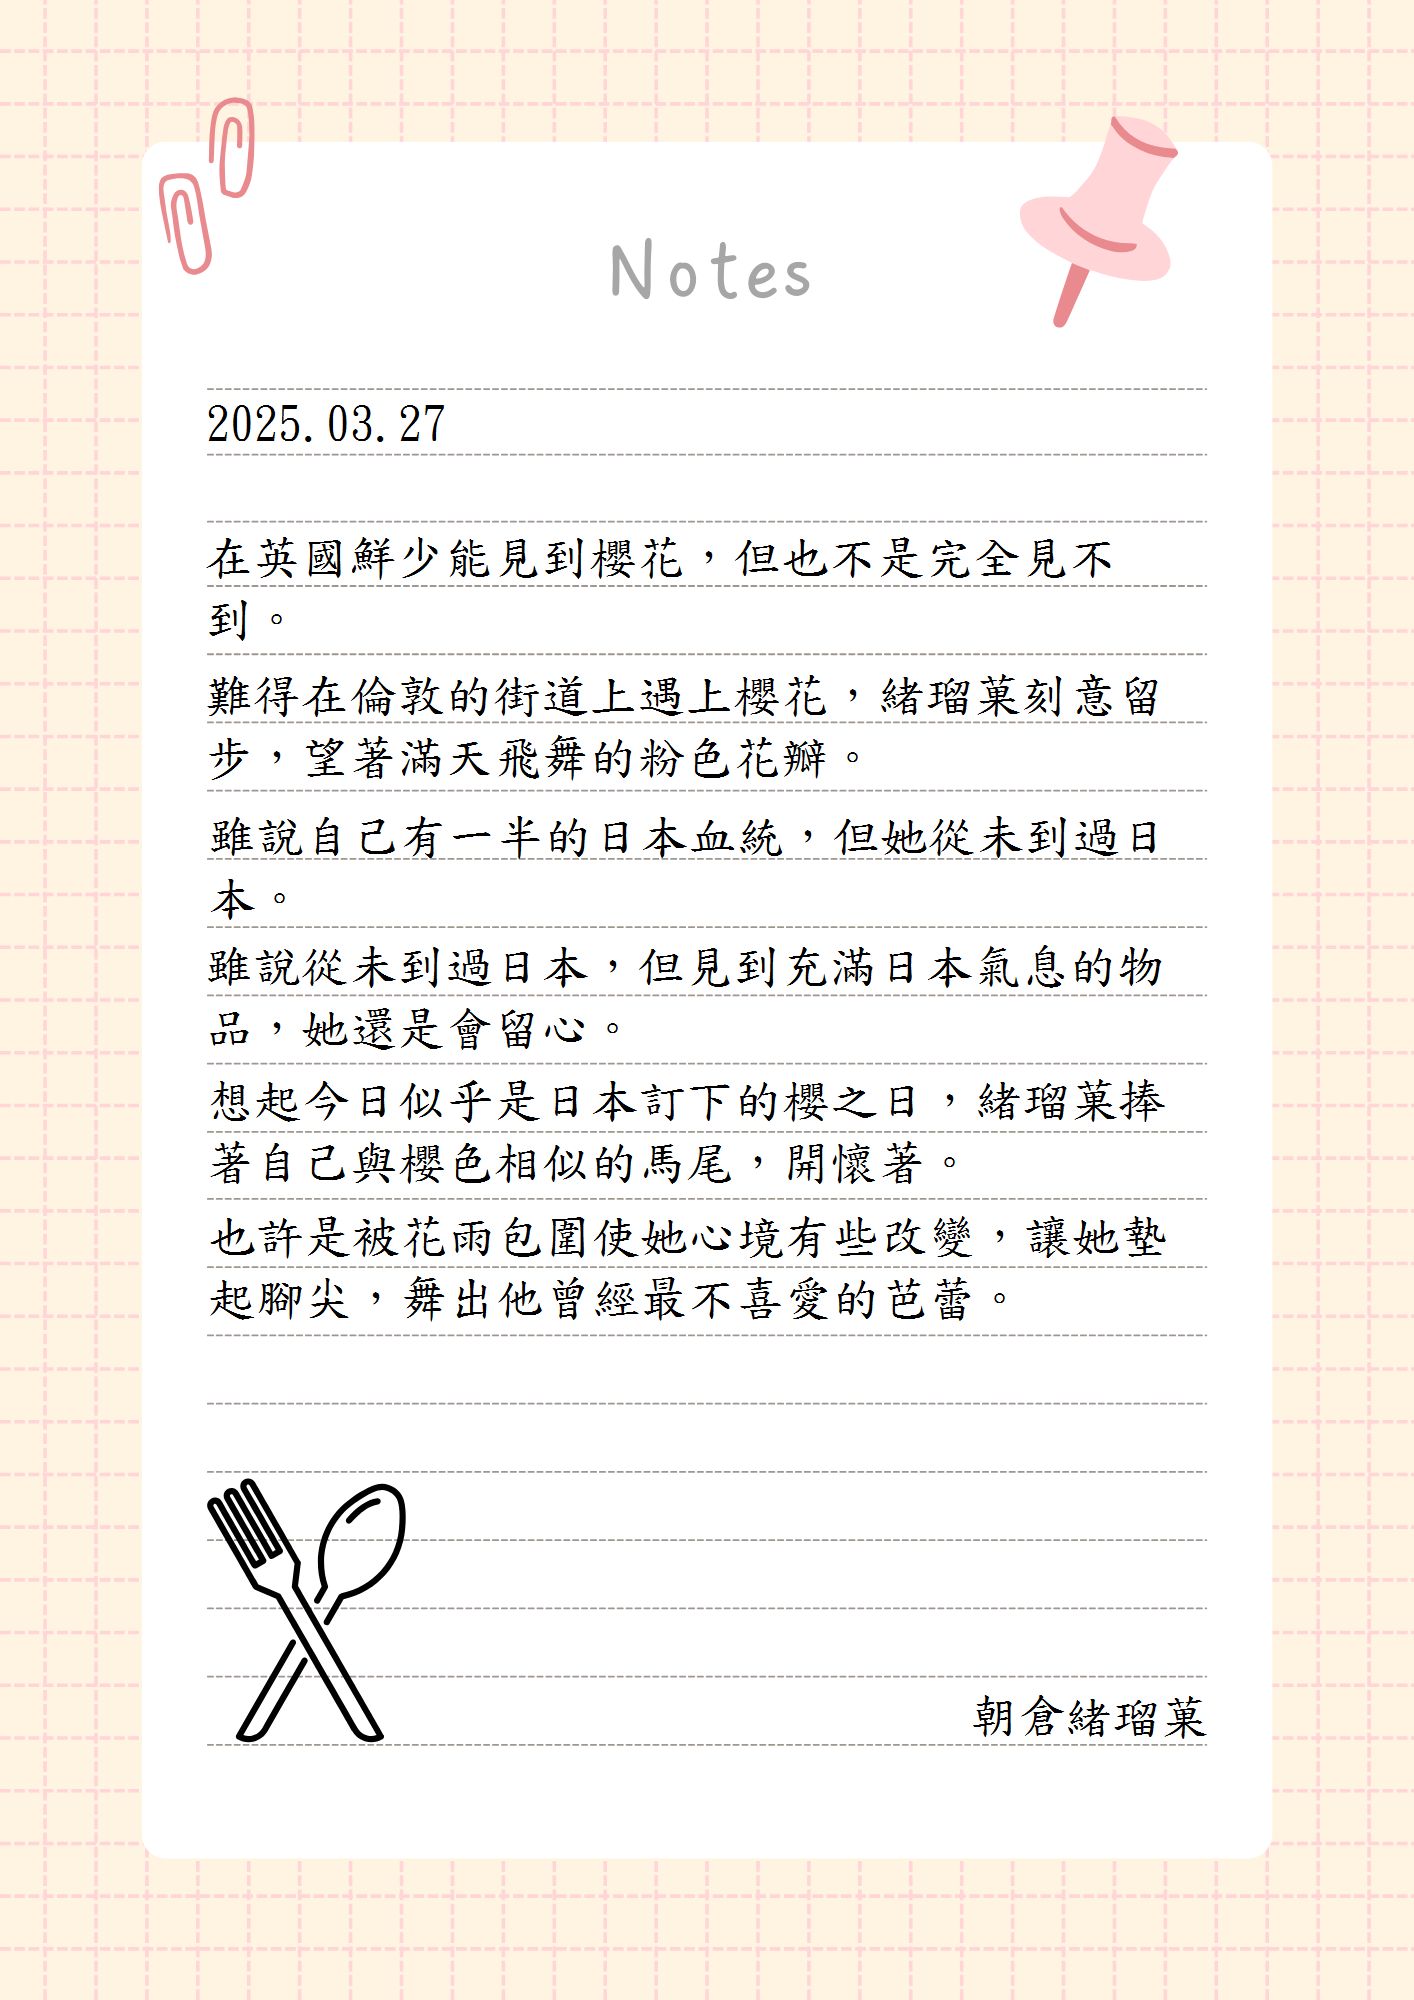 Notes
2025.03.27
在英國鮮少能見到櫻花，但也不是完全見不
到。
難得在倫敦的街道上遇上櫻花，緒瑠菓刻意留
步，望著滿天飛舞的粉色花瓣。
雖說自己有一半的日本血統，但她從未到過日
本。
雖說從未到過日本，但見到充滿日本氣息的物
品，她還是會留心。
想起今日似乎是日本訂下的櫻之日，緒瑠菓捧
著自己與櫻色相似的馬尾，開懷著。
也許是被花雨包圍使她心境有些改變，讓她墊
起腳尖，舞出他曾經最不喜愛的芭蕾。
朝倉緒瑠菓